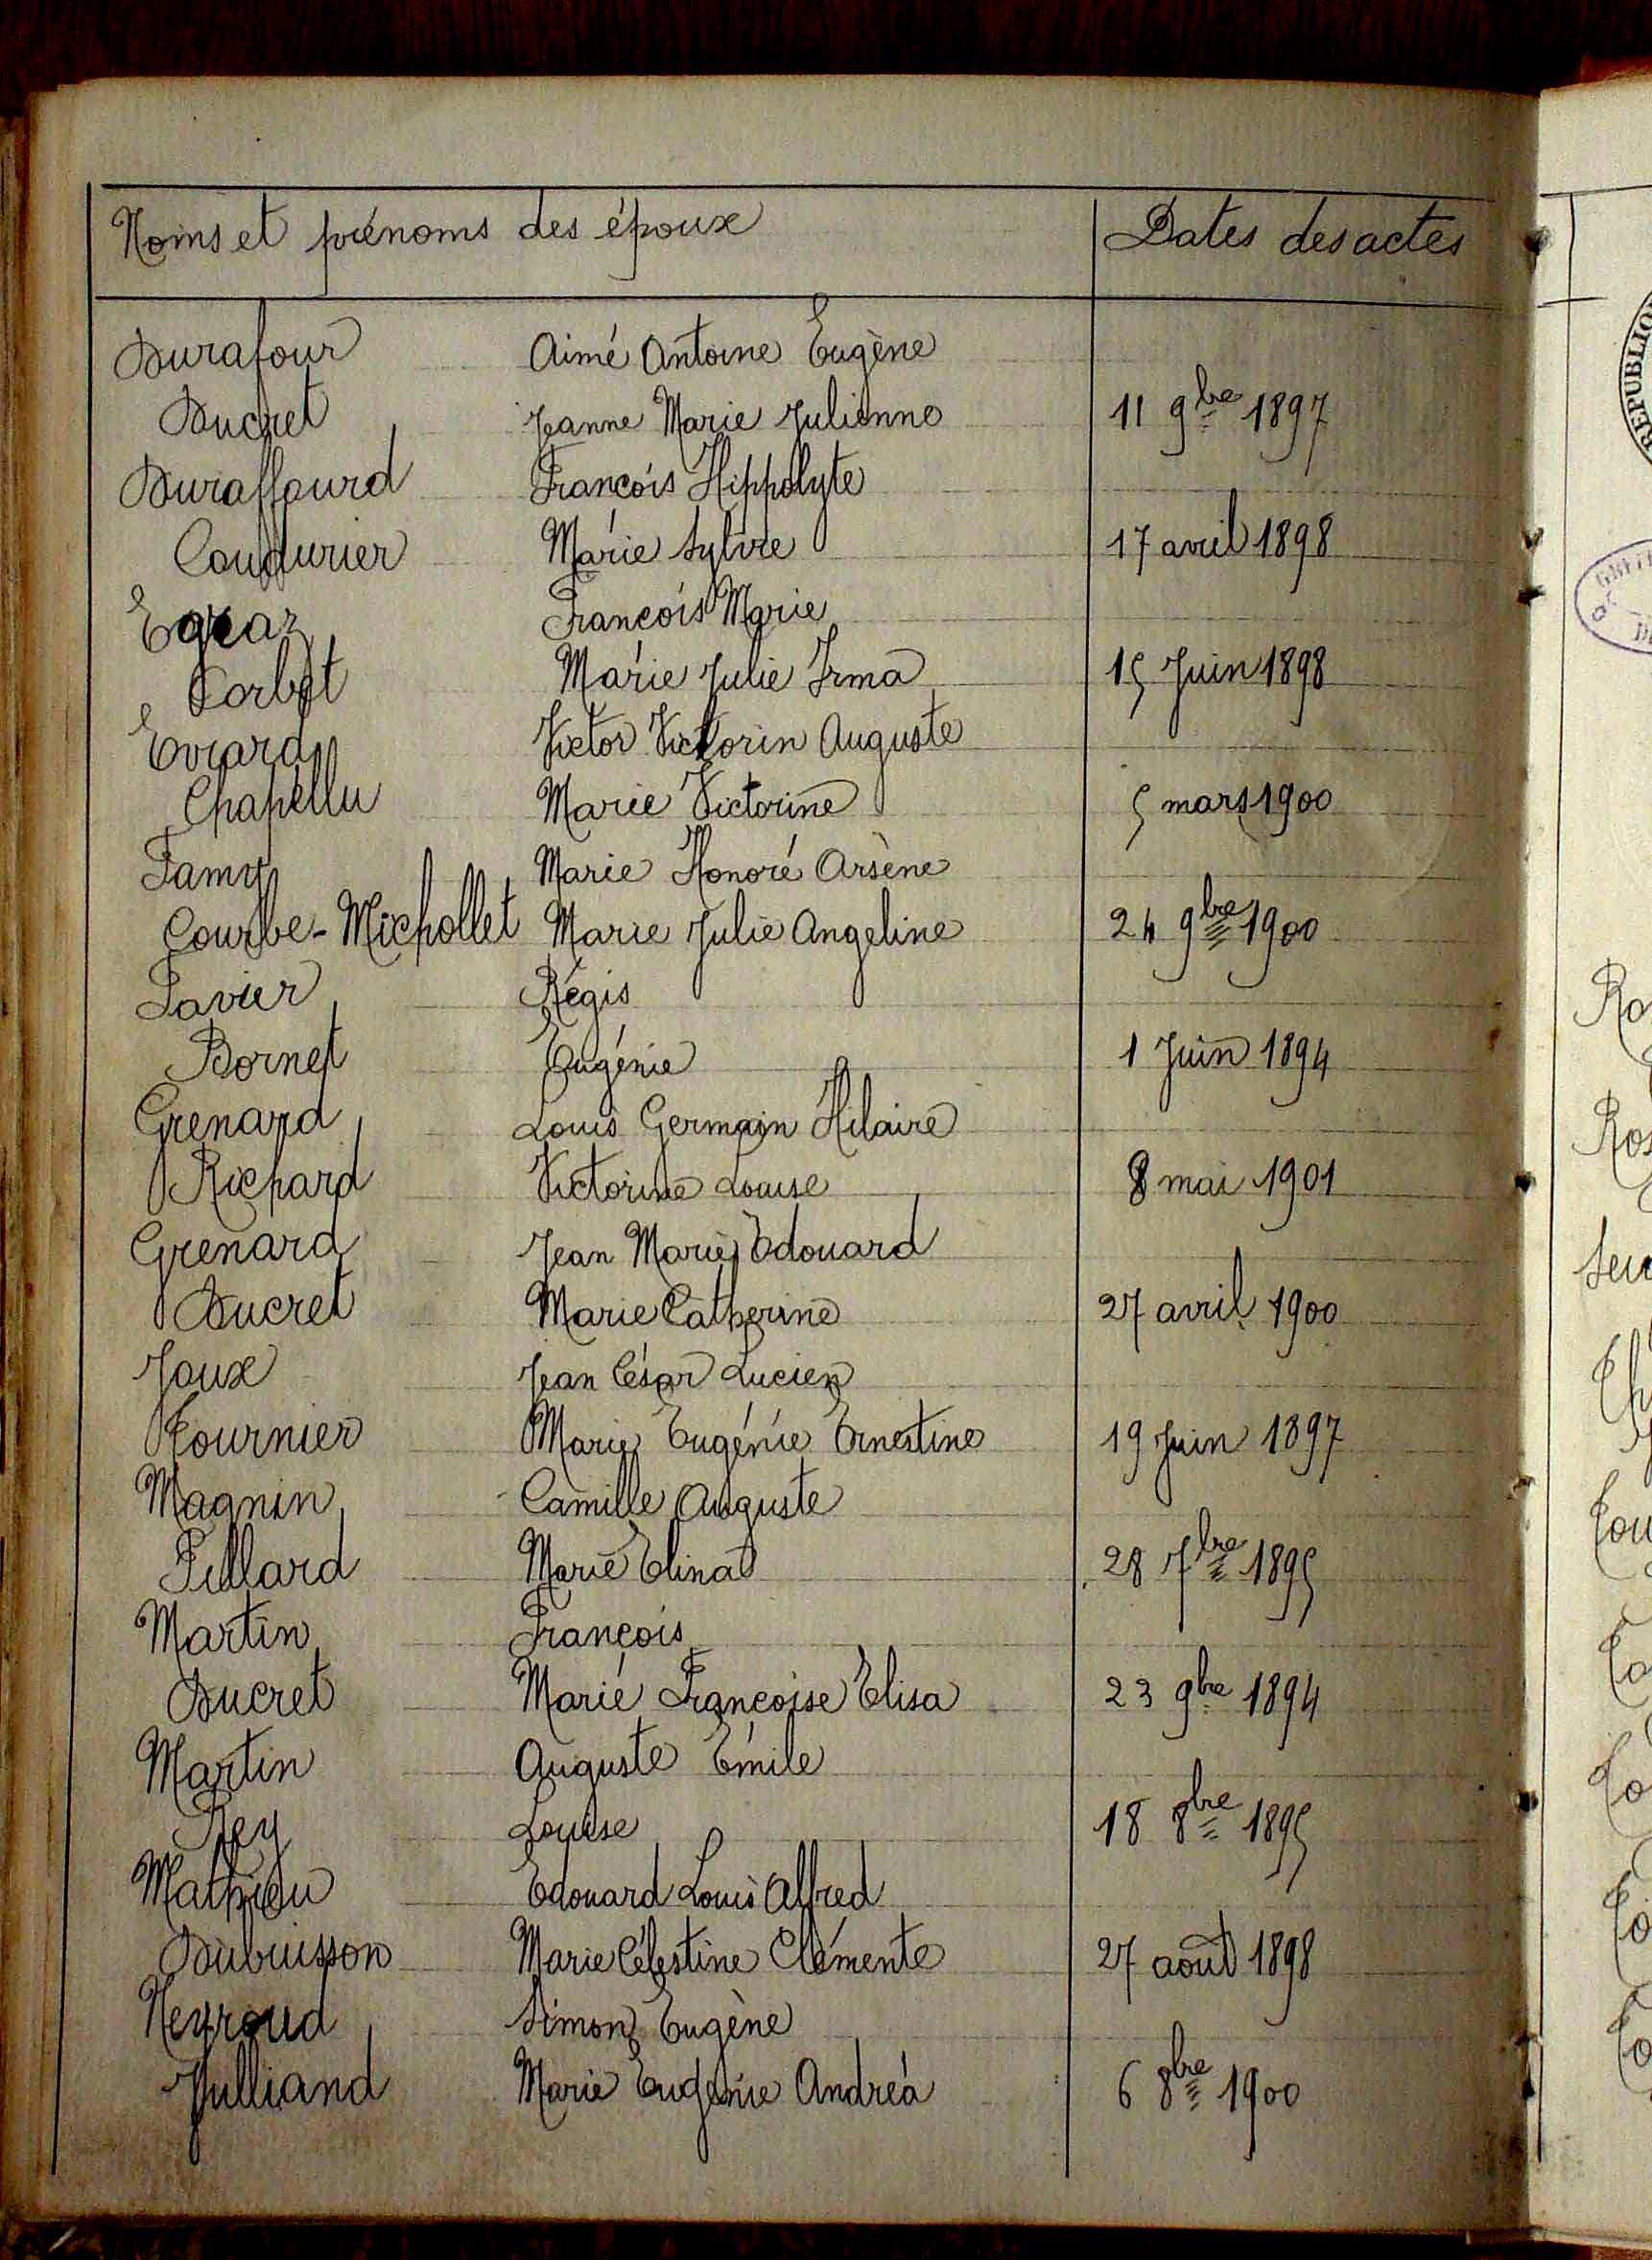 Noms et prénoms des époux Dates des actes
Durafour Aimé Antoine Eugène
Ducret Jeanne Marie Julienne 11 9bre 1897
Duraffourd François Hippolyte
Coudurier Marie Sylvie 17 avril 1898
Egraz François Marie
Corbet Marie Julie Irma 15 Juin 1898
Evrard Victor Victorin Auguste
Chapellu Marie Victorine 5 mars 1900
Famy Marie Honoré Arsène
Courbe-Michollet Marie Julie Angeline 24 9bre 1900
Favier Régis
Bornet Eugénie 1 Juin 1894
Grenard Louis Germain Hilaire
Richard Victorine Louise 8 mai 1901
Grenard Jean Marie Edouard
Ducret Marie Catherine 27 avril 1900
Joux Jean César Lucien
Tournier Marie Eugénie Ernestine 19 Juin 1897
Magnin Camille Auguste
Pillard Marie Elina 28 7bre 1895
Martin François
Ducret Marie Françoise Elisa 23 9bre 1894
Martin Auguste Emile
Rey Louise 18 8bre 1895
Mathieu Edouard Louis Alfred
Dubuisson Marie Célestine Clémente 27 août 1898
Neyroud Simon Eugène
Julliand Marie Eugénie Andréa 6 8bre 1900